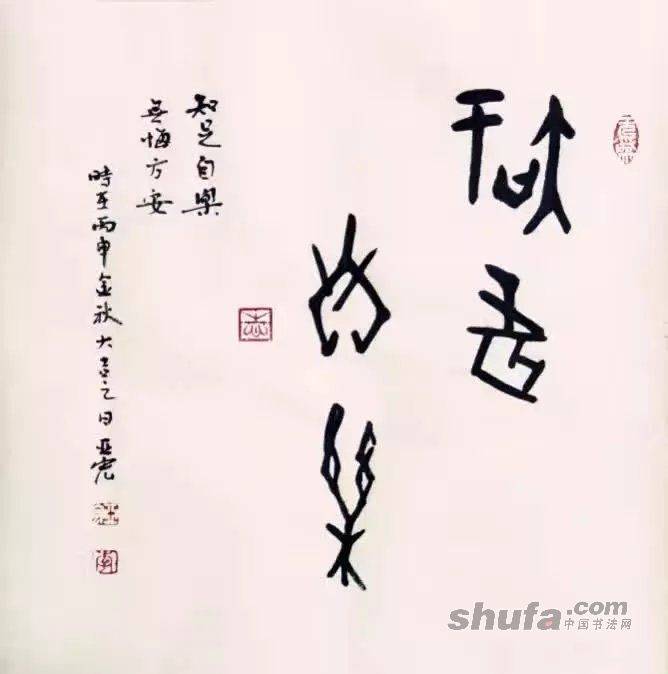 知足
自樂
知足自樂
無悔方安
時在丙申金秋大吉之日亞
shufa.com
中国书法网